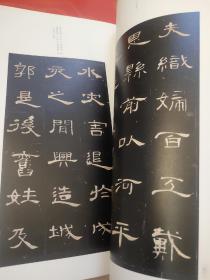 夫織婦百工戴
恩縣前以河平
水災害退於戍
亥之間興造城
郭是後舊姓及